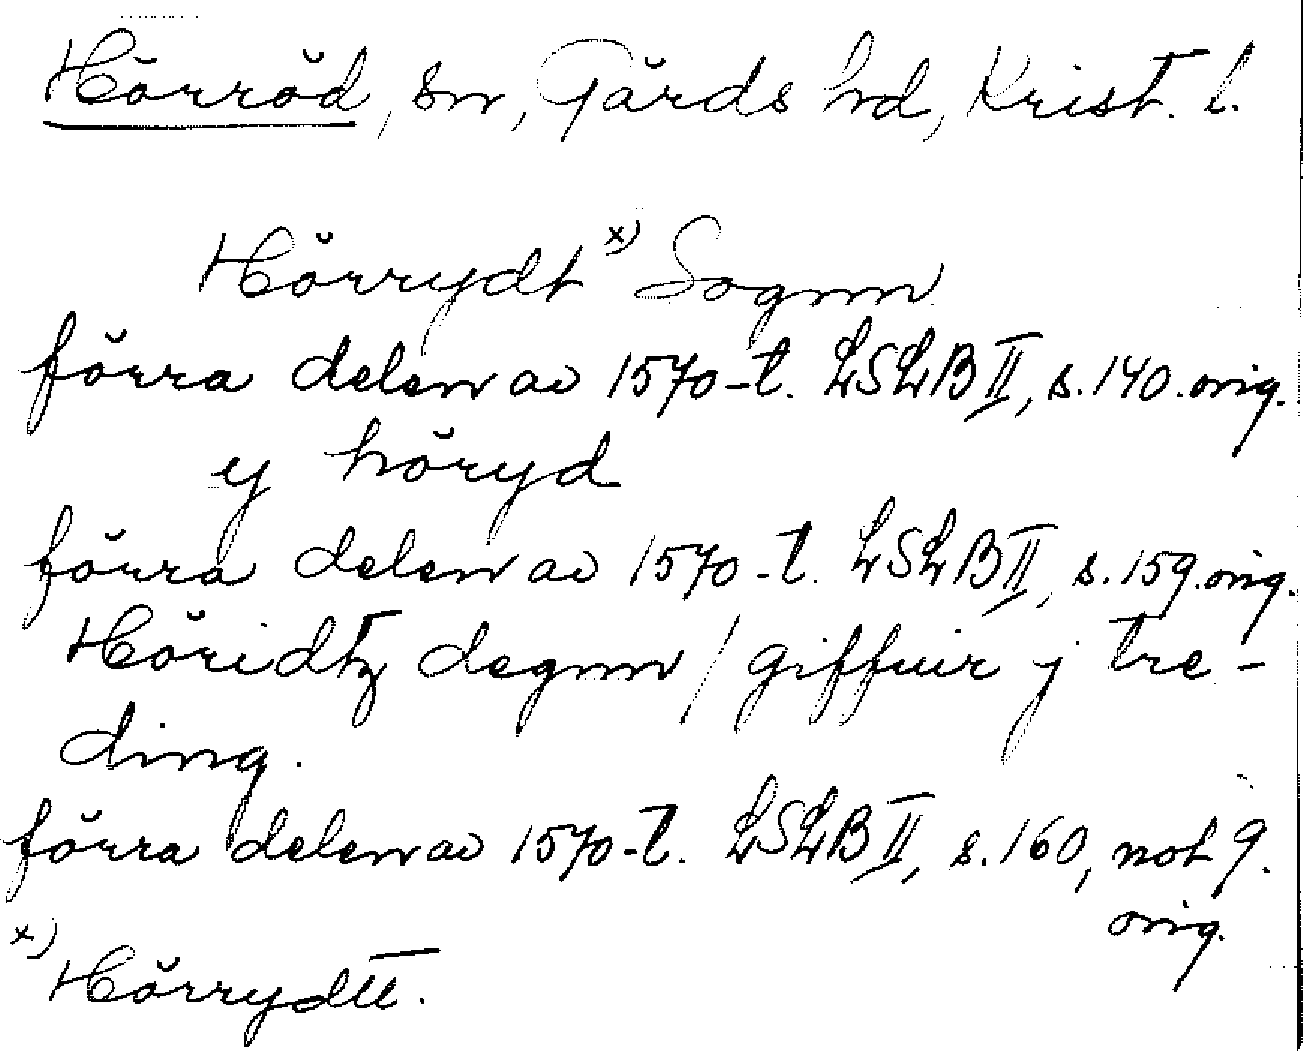 Hörröd, sn, Gärds hd, Krist. l.
Hörrydt x) Sognn
förra delen av 1570-t. LSLB II, s. 140. orig.
y höryd
förra delen av 1570-t. LSLB II, s. 159. orig.
Höridtz degnn / giffuir j tre-
ding.
förra delen av 1570-t. LSLB II, s. 160, not 9.
orig.
x) Hörrydtt.